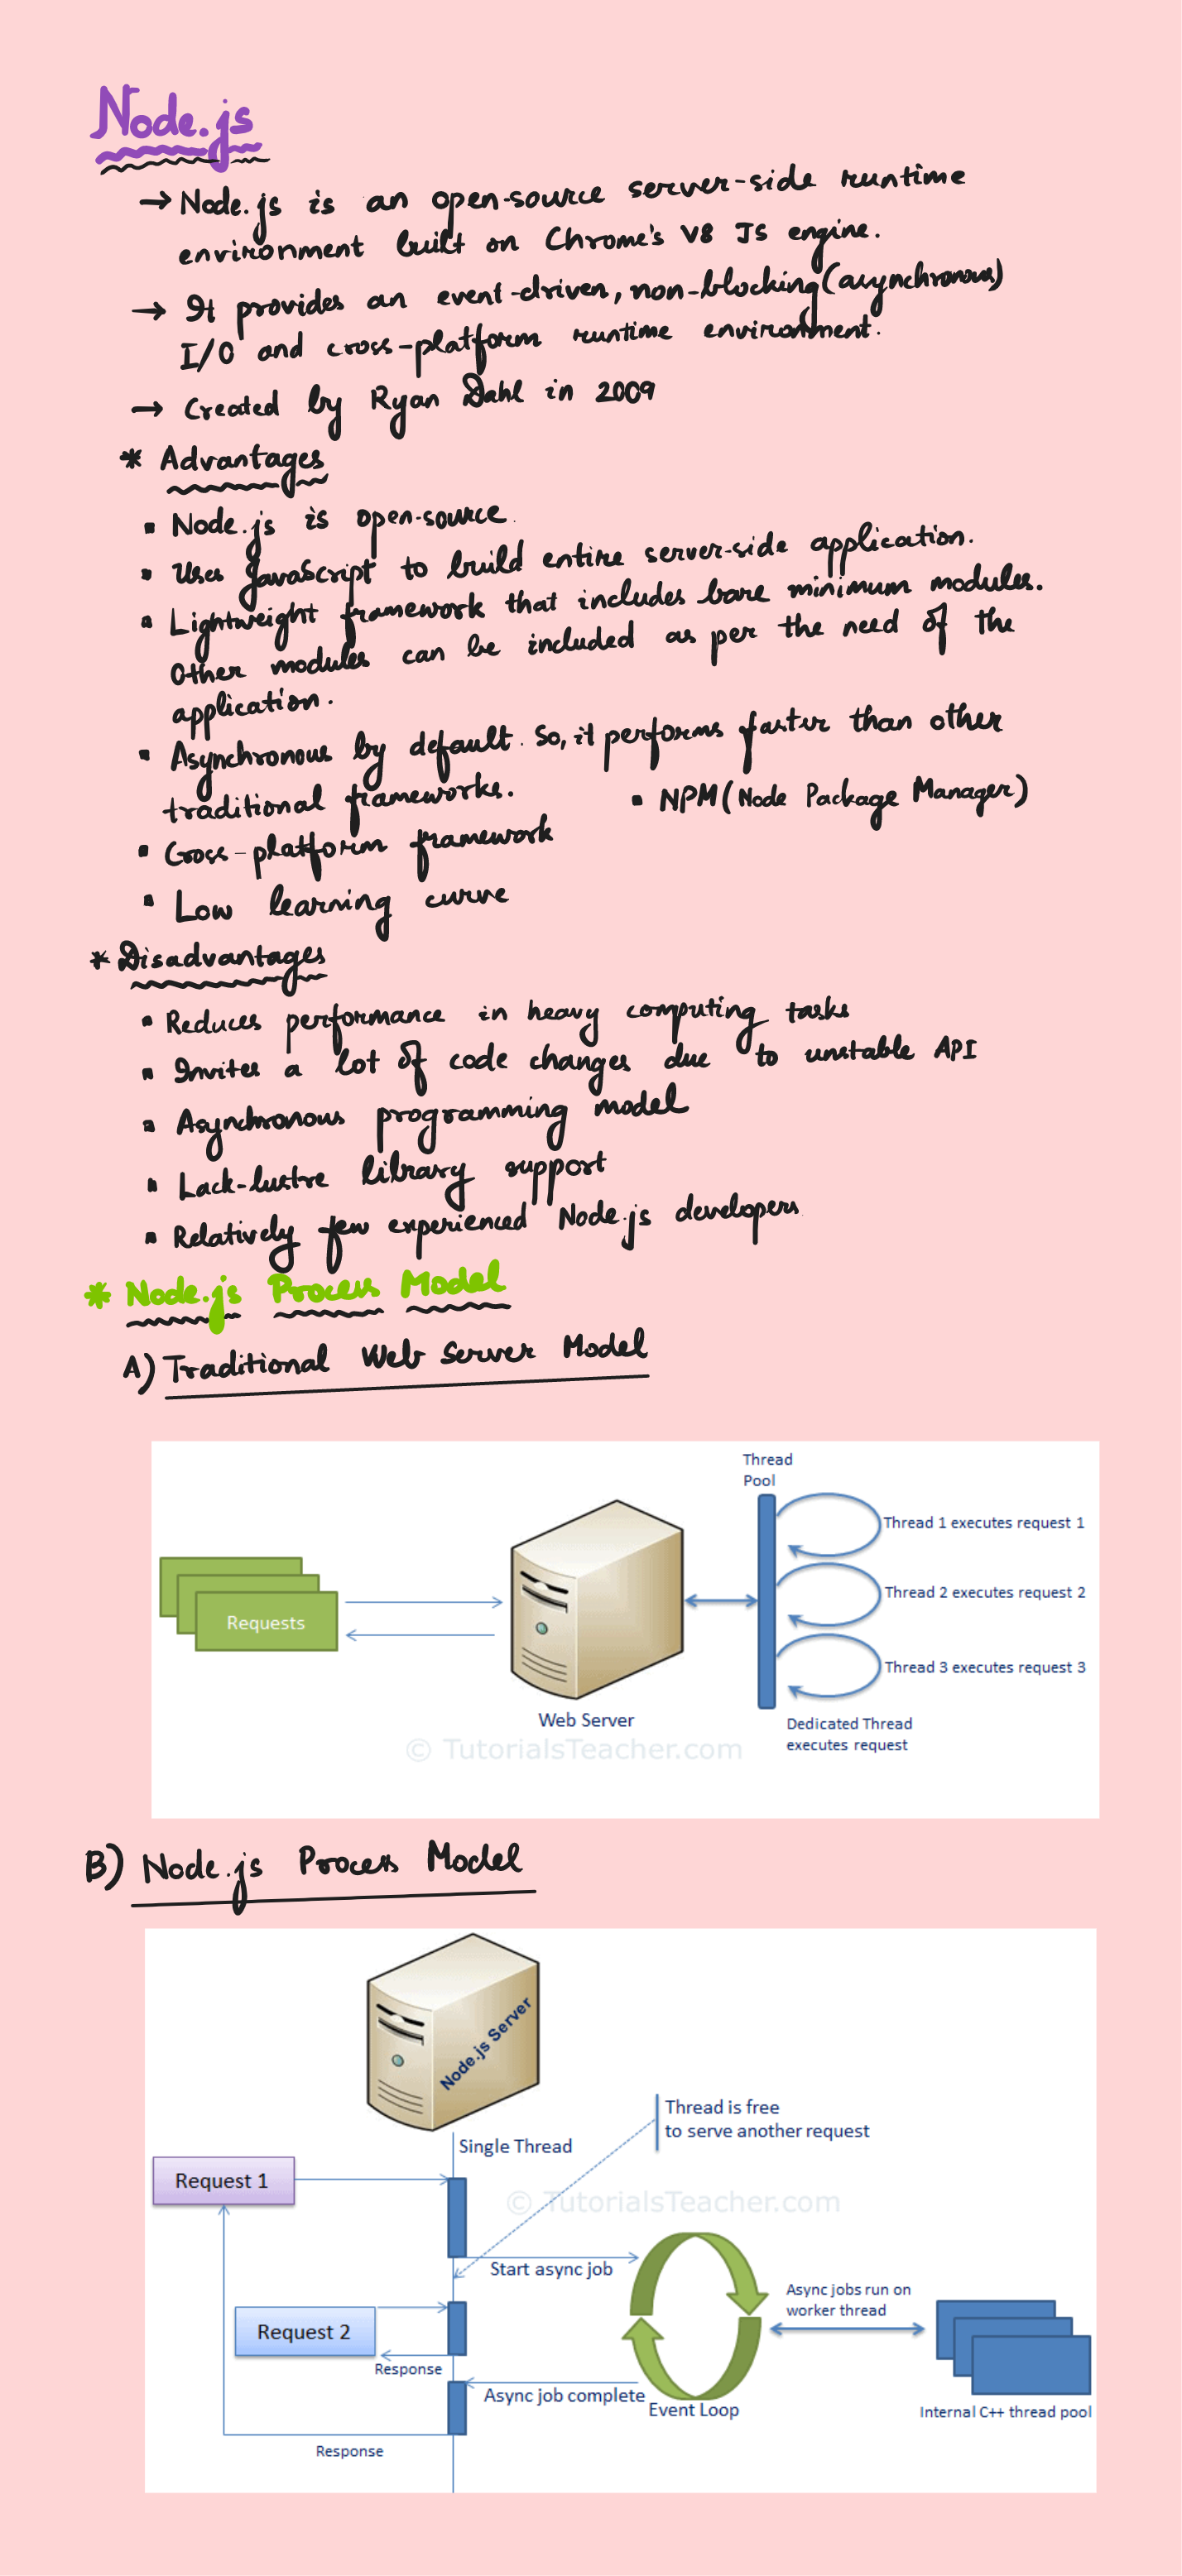 Node.js
→ Node.js is an open-source server-side runtime
environment built on Chrome's V8 JS engine.
→ It provides an event-driven, non-blocking (asynchronous)
I/O and cross-platform runtime environment.
→ Created by Ryan Dahl in 2009
* Advantages
▪ Node.js is open-source.
▪ Uses JavaScript to build entire server-side application.
▪ Lightweight framework that includes bare minimum modules.
Other modules can be included as per the need of the
application.
▪ Asynchronous by default. So, it performs faster than other
traditional frameworks.
▪ NPM (Node Package Manager)
▪ Cross-platform framework
▪ Low learning curve
* Disadvantages
▪ Reduces performance in heavy computing tasks
▪ Invites a lot of code changes due to unstable API
▪ Asynchronous programming model
▪ Lack-lustre library support
▪ Relatively few experienced Node.js developers.
* Node.js Process Model
A) Traditional Web Server Model
Thread
Pool
Thread 1 executes request 1
Thread 2 executes request 2
Requests
Thread 3 executes request 3
Web Server
Dedicated Thread
executes request
© TutorialsTeacher.com
B) Node.js Process Model
Node.js Server
Thread is free
to serve another request
Single Thread
Request 1
© TutorialsTeacher.com
Start async job
Async jobs run on
worker thread
Request 2
Response
Async job complete
Event Loop
Internal C++ thread pool
Response